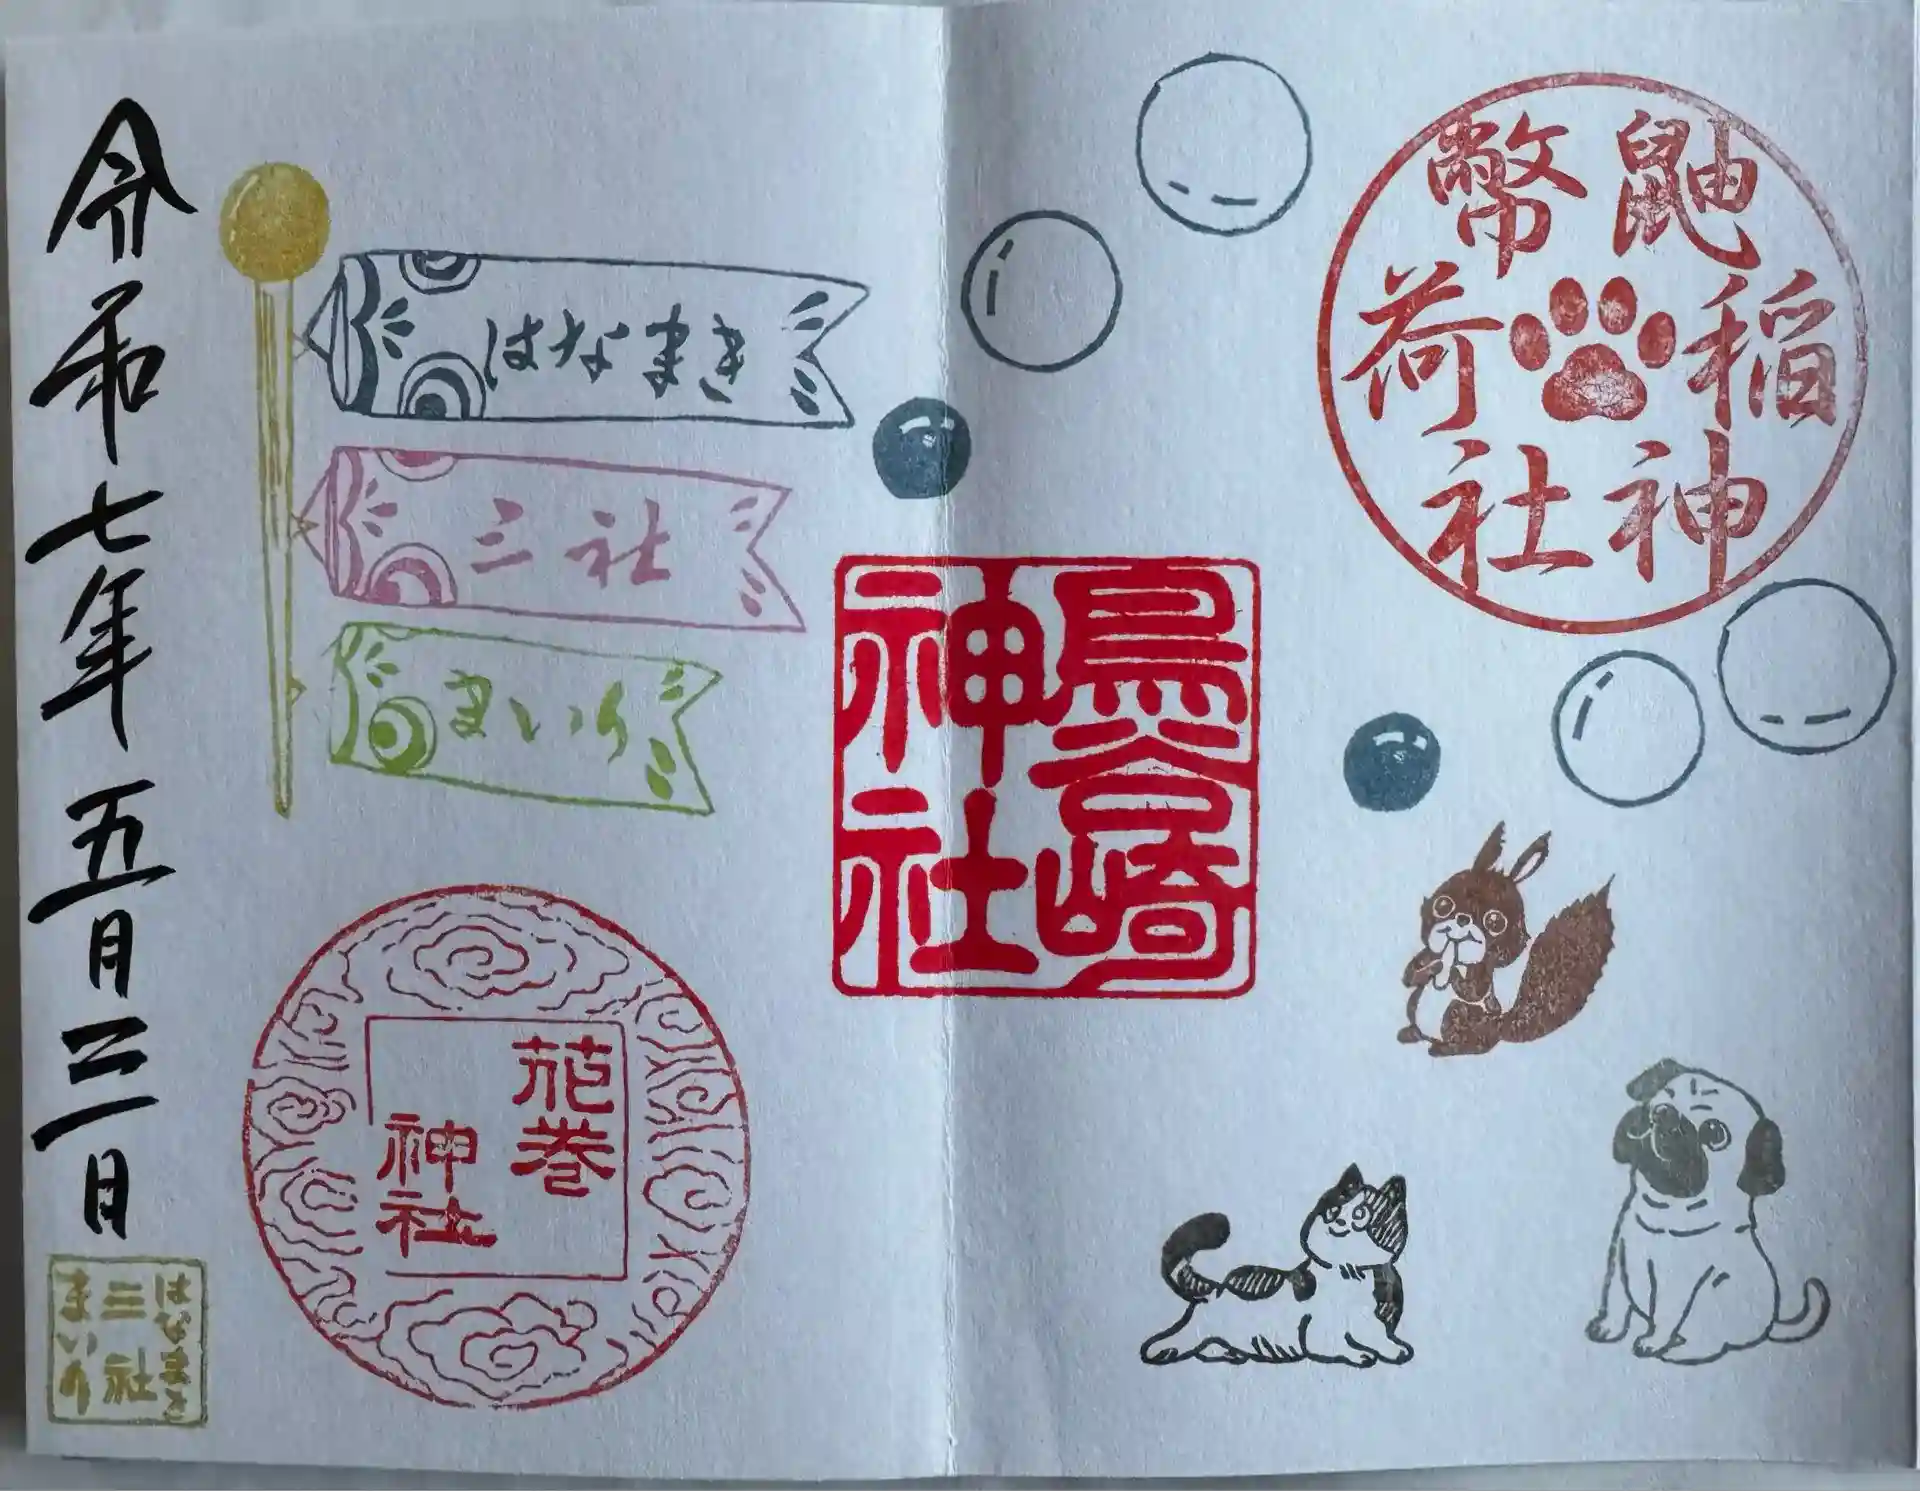 鼬幣
稲荷
神社
鳥谷崎
神社
はなまき
三社
まいり
花巻
神社
令和七年五月三日
はなまき
三社
まいり